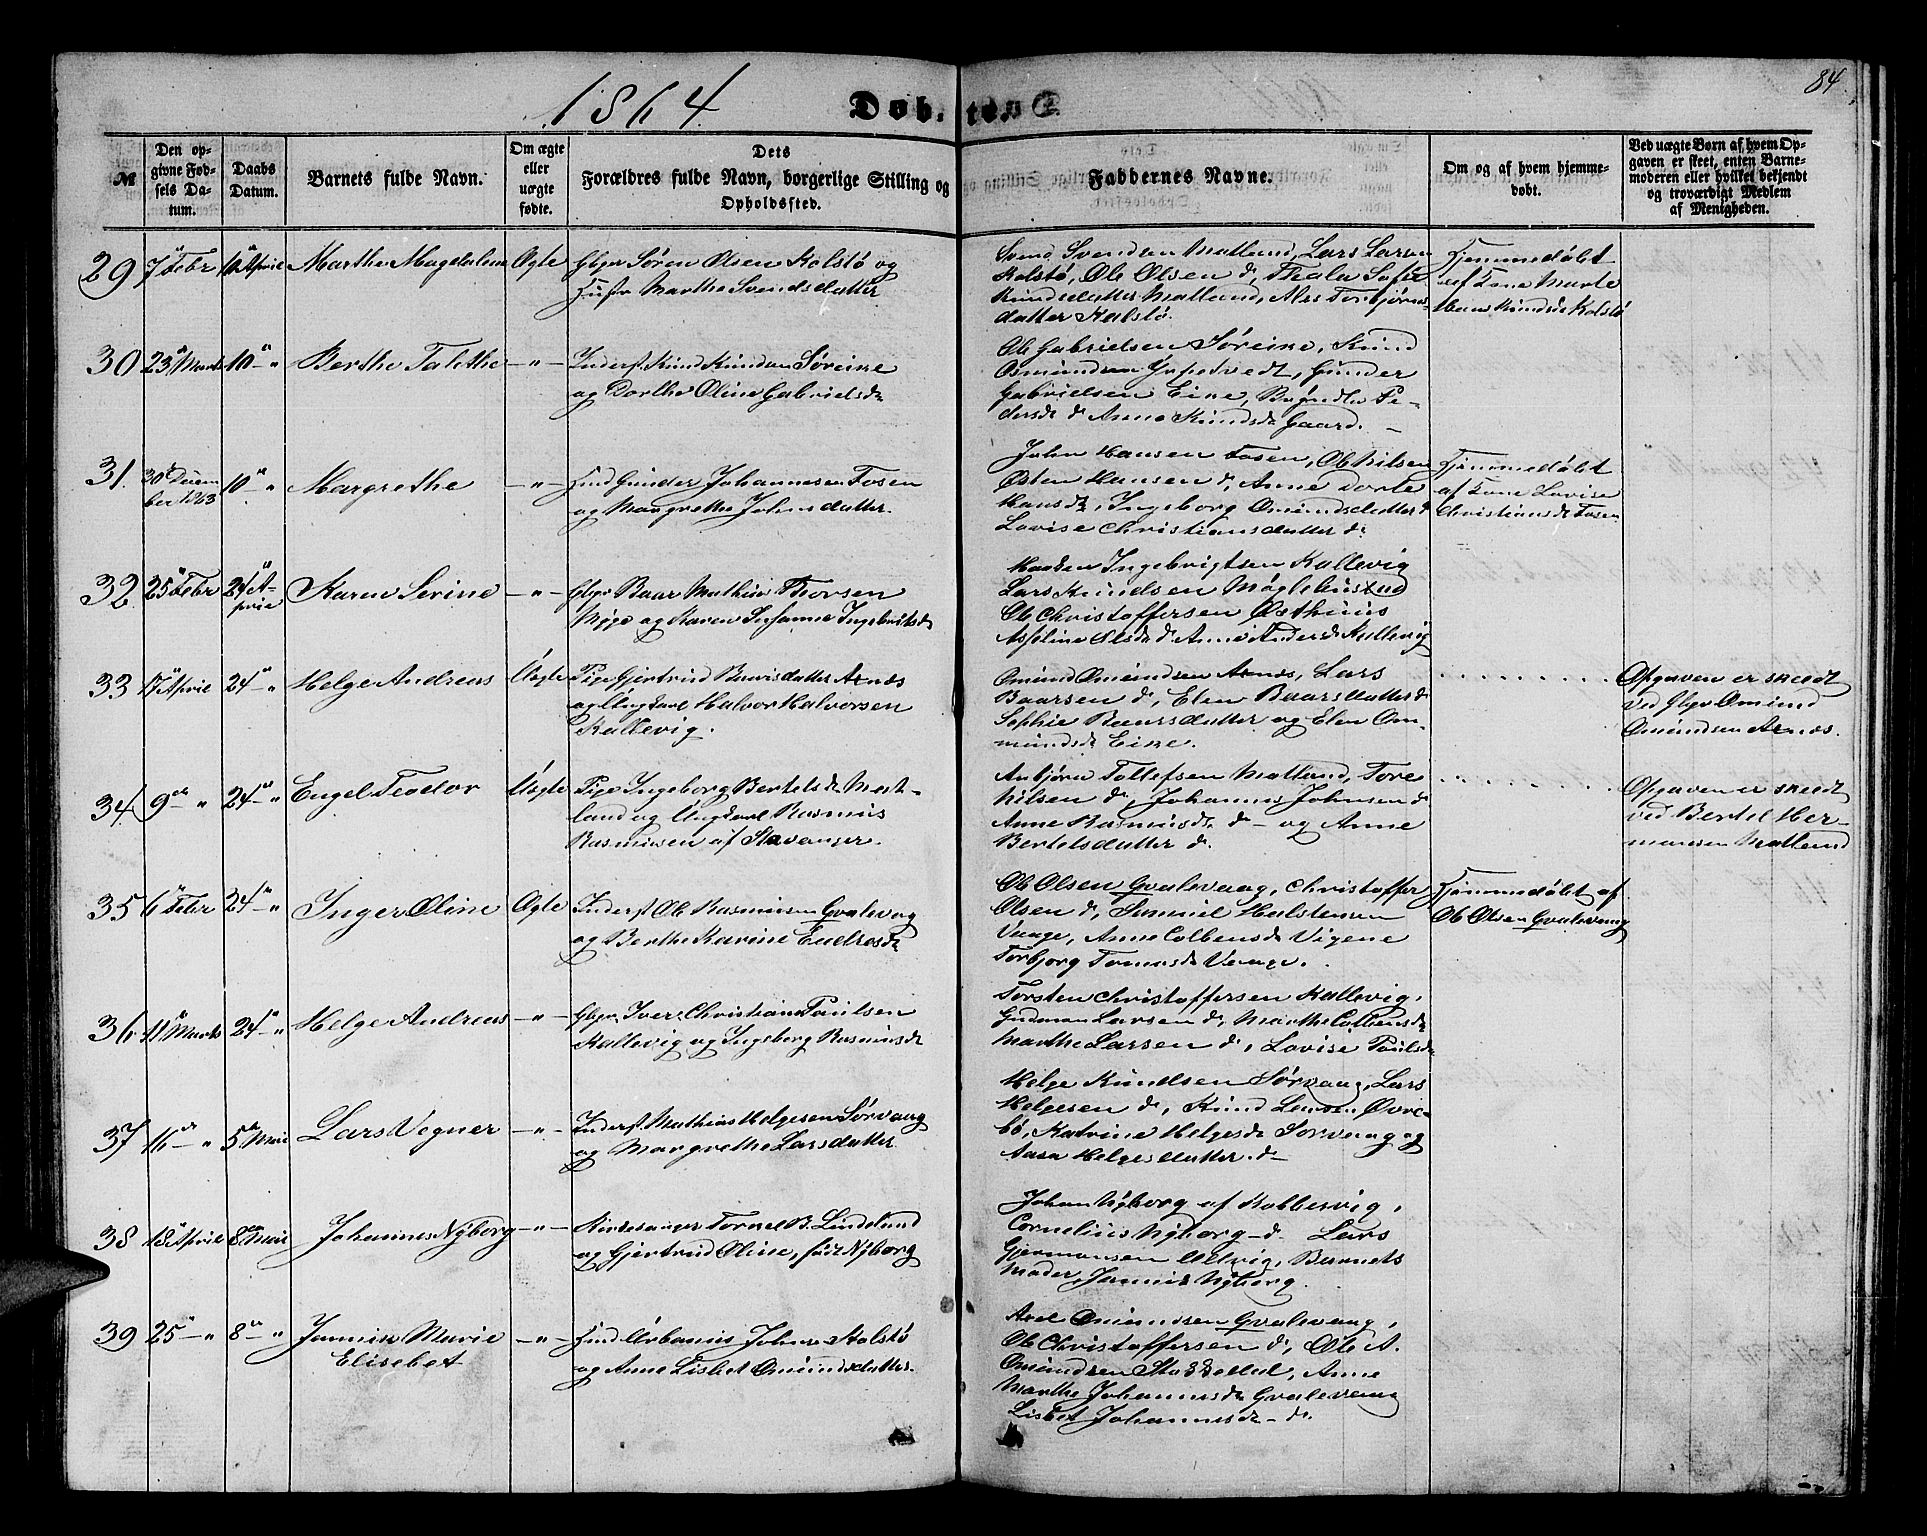 1864
Døbte.
84
№
Den opgivne Fødsels Datum.
Daabs Datum.
Barnets fulde Navn.
Om ægte eller uægte fødte.
Dets Forældres fulde Navn, borgerlige Stilling og Opholdssted.
Faddernes Navne.
Om og af hvem hjemmedøbt.
Ved uægte Børn af hvem Opgaven er skeet, enten Barnemoderen eller hvilket bekjendt og troværdigt Medlem af Menigheden.
29 7de Febr 10de April Marthe Magdalene Ægte Gbgr Søren Olsen Kolstø og
Hustr Marthe Svendsdatter
Svend Svendsen Matland, Lars Larsen
Kolstø, Ole Olsen do, Thala Sofie
Knudsdatter Matland, Ales Torbjørns-
datter Kolstø.
Hjemmedøbt
af Kone Marte
Knudsd Kolstø
30 23de Marts 10de " Berthe Talethe —"— Inderst Knud Knudsen Søreike
og Dorthe Oline Gabrielsdr
Ole Gabrielsen Søreike, Knud
Osmundsen Grpetvedt, Gunder
Gabrielsen Eike, Brynilla Pe-
dersdr do Anna Knudsdr Gaard. —
31. 30de Decem- 10de " Margrethe —"— Hmd Gunder Johannesen Fosen
ber 1863
og Margrethe Johnsdatter.
John Hansen Fosen, Ole Nilsen
Østen Hansen do, Anne Dorte
Hansdr, Ingeborg Omundsdatter do
Lovise Christiansdatter do
Hjemmedøbt
af Kone Lovise
Christiansdr Fosen
32 25de Febr 24de A- Karen Serine —"— Gbgr Baar Mathias Thorsen
pril
Myge og Karen Susanne Ingebritsdr
Haaken Ingebrigtsen Kallevig
Lars Knudsen Møglebustad
Ole Christoffersen Østhuus
Asseline Olsdr do Anne Andersdr Kallevig
33 17de April 24de " Helge Andreas Uægte Pige Gjertrud Baarsdatter Aanæs
og Ungkarl Halvor Halvorsen
Kallevig.
Omund Omundsen Aanæs, Lars
Baarsen do, Elen Baarsdatter do
Sophie Baarsdatter og Elen Om-
mundsdr Eike.
Opgaven er skeedt
ved Gbgr Omund
Omundsen Aanæs.
34 9de " 24de " Engel Teodor Uægte Pige Ingeborg Bertelsdr Mat-
land og Ungkarl Rasmus
Rasmussen af Stavanger.
Anbjørn Tollefsen Matland, Tore
Nilsen do, Johannes Johnsen do
Anne Rasmusdr do — og Anne
Bertelsdatter do.
Opgaven er skeedt
ved Bertel Her-
mansen Matland
35 6de Febr 24de " Inger Oline Ægte Inderst Ole Rasmusen Gvalevaag
og Berthe Karine Endresdr
Ole Olsen Gvalevaag, Christoffer
Olsen do, Samuel Halstensen
Vaage, Anne Colbensdr Vigene
Torbjorg Tomasdr Vaage.
Hjemmedøbt af
Ole Olsen Gvalevaag
36 11de Marts 24de " Helge Andreas —"— Gbgr. Iver Christian Paulsen
Kallevig og Ingeborg Rasmusdr
Torsten Christoffersen Kallevig,
Gudman Larsen do, Marthe Colbensdr
Marthe Larsen do, Lovise Paulsdr
37 16de " 5de Mai Lars Vegner —"— Inderst Mathias Helgesen Sørvaag
og Margrethe Larsdatter
Helge Knudsen Sørvaag, Lars
Helgesen do, Knud Larsen Øvre-
bø, Katrine Helgesdr Sørvaag og
Aasa Helgesdatter do
38 18de April 8de Mai Johannes Nyborg —"— Kirkesanger Tornel B. Lindeland
og Gjertrud Oline, født Nyborg
Johan Nyborg af Kobbervig,
Cornelius Nyborg — do Lars
Gjermansen Utvig, Barnets
Moder, Jannik Nyborg.
39 25de " 8de " Jannik Marie —"— Hmd Urbanus Johns. Kolstø
Elisebet
og Anne Lisbet Omundsdatter.
Axel Omundsen Gvalevaag,
Ole Christoffersen do, Ole A.
Omundsen Stokkeled, Anne
Marthe Johannesdr Gvalevaag
Lisbet Johannesdr — do.